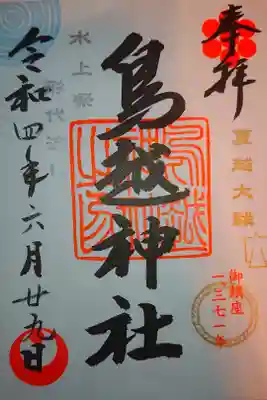 奉拝
夏越大祓
御鎮座
一三七一年
鳥越神社
水上祭
令和四年六月廿九日